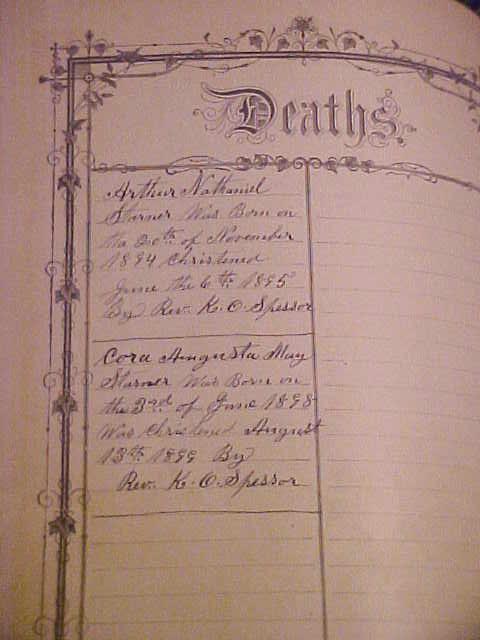 Deaths.
Arthur Nathaniel
Starner Was Born on
the 20th of November
1894 Christened
June the 6th 1895
By Rev. K. O. Spessor
Cora Augusta May
Starner Was Born on
the 3rd of June 1898
Was Christened August
13th 1899 By
Rev. K. O. Spessor